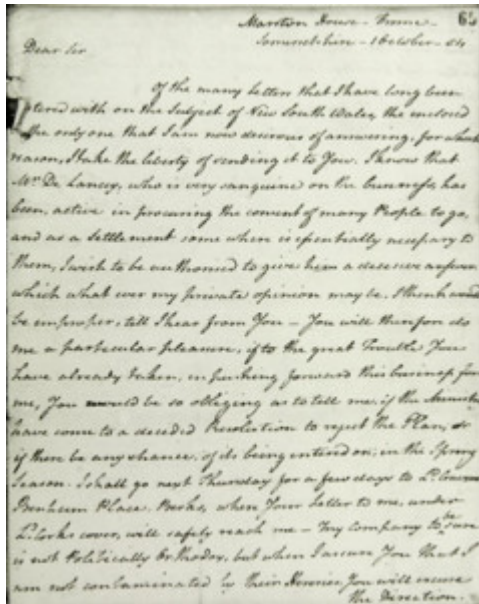 65
Marston House - Frome -
Somersetshire - 1 October - 84
Dear Sir
Of the many Letters that I have long been
tered with on the Subject of New South Wales, the inclosed
the only one that I am now desirous of answering, for which
reason, I take the liberty of sending it to You. I know that
Mr. De Lancey, who is very sanguine on the business, has
been, active in procuring the consent of many People to go,
and as a Settlement some where is essentially necessary to
them, I wish to be authorised to give him a decisive answer
which what ever my private opinion may be, I think would
be improper, till I hear from You - You will therefore do
me a particular pleasure, if to the great Trouble You
have already taken, in pushing forward this business for
me, You would be so obliging as to tell me, if the
have come to a decided Resolution to reject the Plan, or
if there be any chance, of its being entered on, in the Spring
Season. I shall go next Thursday for a few days to Ld.
Benham Place. Berks, where Your Letter to me, under
Ld. Corks cover, will safely reach me - My Company to be sure
is not Politically Orthodox, but when I assure You that I
am not contaminated by their Heresies, You will excuse
the Direction.